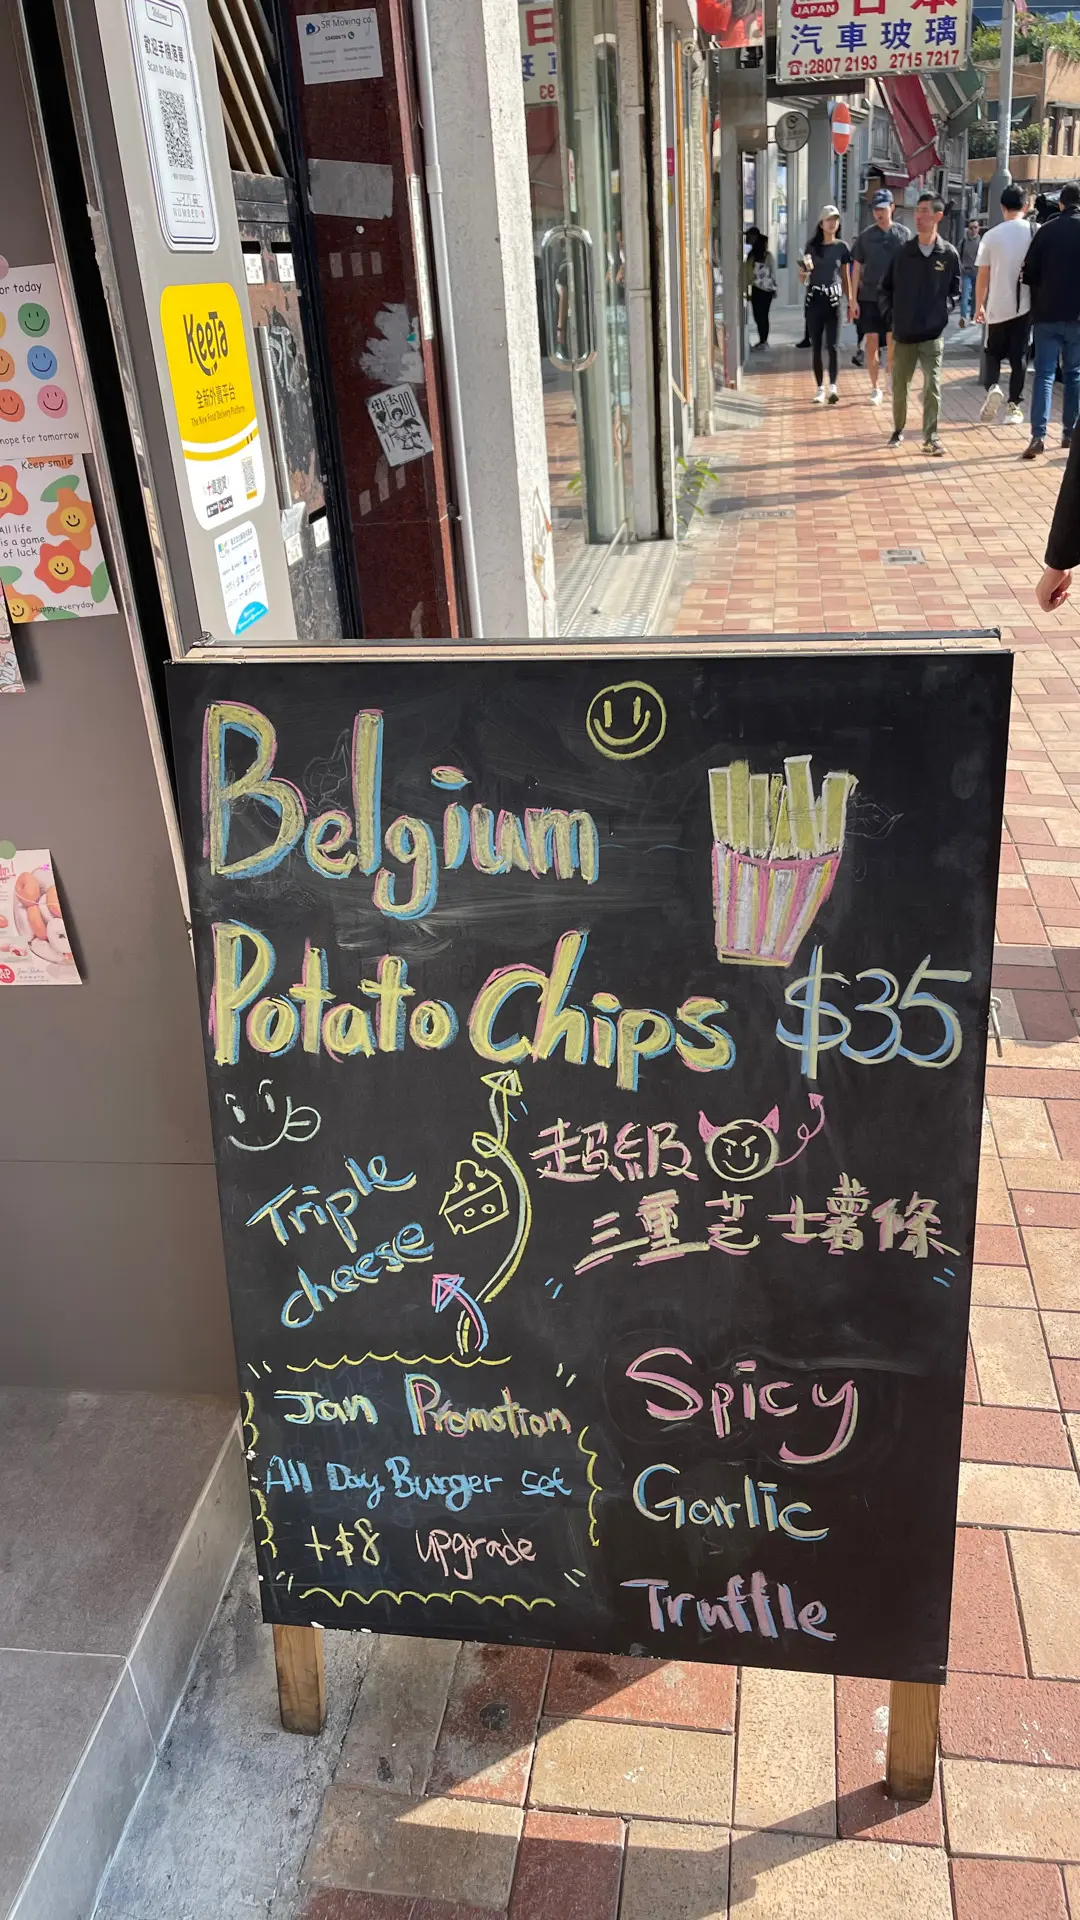 Welcome
歡迎手機落單
Scan to Take Order
SR Moving co.
日本
JAPAN
汽車玻璃
☎:2807 2193 2715 7217
KeeTa
全新外賣平台
The New Food Delivery Platform
or today
hope for tomorrow
Keep smile
All life
is a game
of luck.
Happy everyday
Belgium
Potato Chips $35
超級
三重芝士薯條
Triple
cheese
Jan Promotion
All Day Burger set
+$8 upgrade
Spicy
Garlic
Truffle